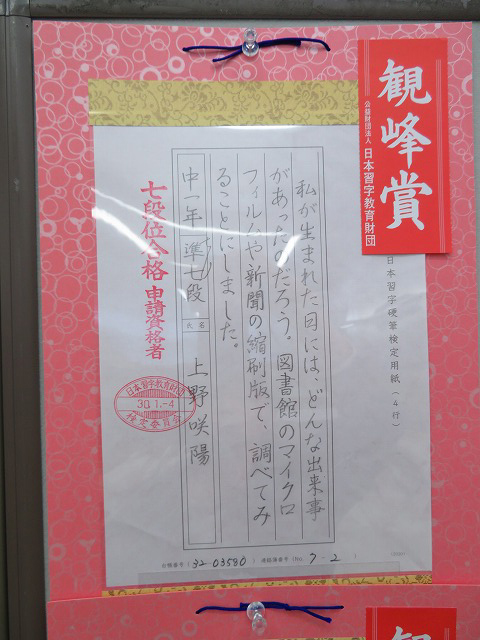 観峰賞
公益財団法人 日本習字教育財団
日本習字硬筆検定用紙(4行)
私が生まれた日には、どんな出来事
があったのだろう。図書館のマイクロ
フィルムや新聞の縮刷版で、調べてみ
ることにしました。
中一年 準七段 氏名 上野咲陽
七段位合格 申請資格者
日本習字教育財団
30.1.-4
検定委員会
会員番号(32-03580) 連絡簿番号(No. 7-2)